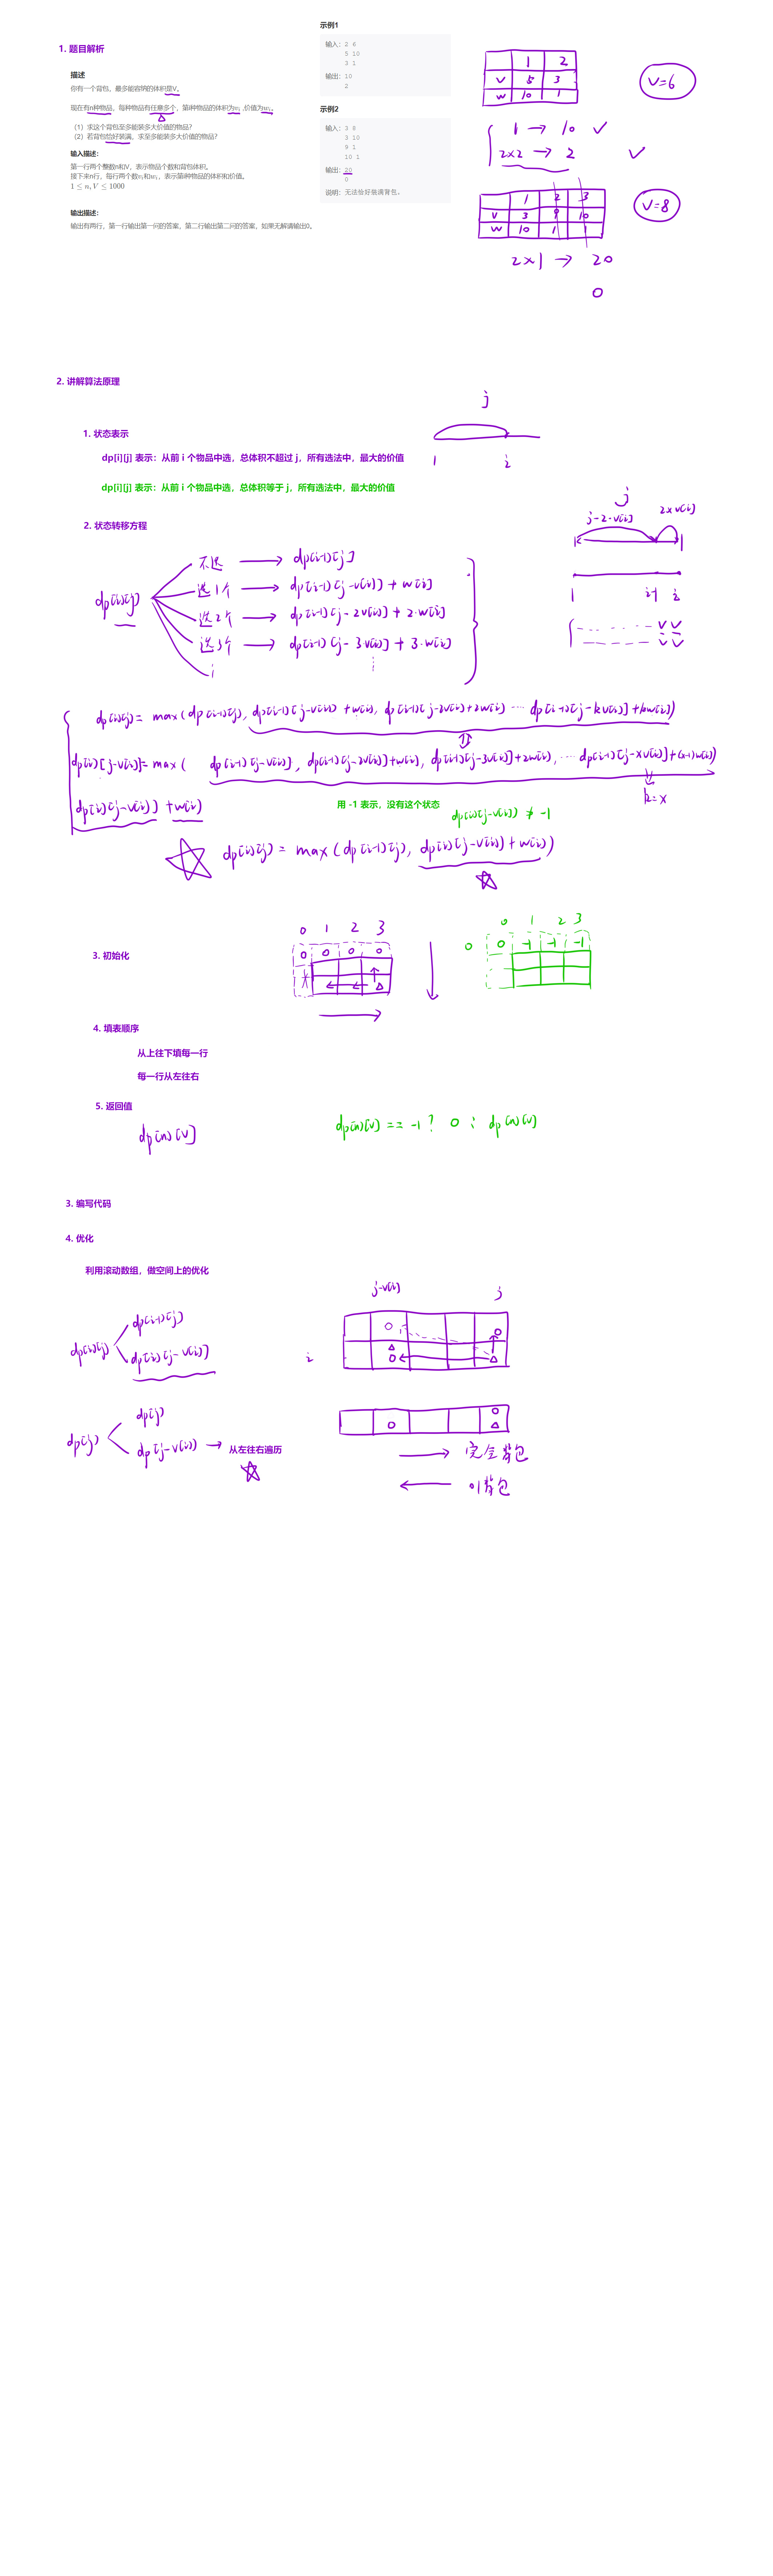 1. 题目解析
描述
你有一个背包，最多能容纳的体积是V。
现在有n种物品，每种物品有任意多个，第i种物品的体积为vᵢ ,价值为wᵢ。
（1）求这个背包至多能装多大价值的物品？
（2）若背包恰好装满，求至多能装多大价值的物品？
输入描述：
第一行两个整数n和V，表示物品个数和背包体积。
接下来n行，每行两个数vᵢ和wᵢ，表示第i种物品的体积和价值。
1 ≤ n, V ≤ 1000
输出描述：
输出有两行，第一行输出第一问的答案，第二行输出第二问的答案，如果无解请输出0。
示例1
输入：2 6
5 10
3 1
输出：10
2
示例2
输入：3 8
3 10
9 1
10 1
输出：20
0
说明：无法恰好装满背包。
1 2
V 5 3
W 10 1
V=6
1 → 10 ✓
2×2 → 2 ✓
1 2 3
V 3 9 10
W 10 1 1
V=8
2×1 → 20
0
2. 讲解算法原理
1. 状态表示
dp[i][j] 表示：从前 i 个物品中选，总体积不超过 j，所有选法中，最大的价值
dp[i][j] 表示：从前 i 个物品中选，总体积等于 j，所有选法中，最大的价值
j
1 i
2. 状态转移方程
dp[i][j]
不选 → dp[i-1][j]
选1个 → dp[i-1][j-v[i]] + w[i]
选2个 → dp[i-1][j-2v[i]] + 2·w[i]
选3个 → dp[i-1][j-3v[i]] + 3·w[i]
j
j-2·v[i] 2×v[i]
1 i-1 i
dp[i][j] = max(dp[i-1][j], dp[i-1][j-v[i]]+w[i], dp[i-1][j-2v[i]]+2w[i] ... dp[i-1][j-kv[i]]+kw[i])
dp[i][j-v[i]] = max( dp[i-1][j-v[i]], dp[i-1][j-2v[i]]+w[i], dp[i-1][j-3v[i]]+2w[i], ... dp[i-1][j-xv[i]]+(x-1)w[i])
k=x
dp[i][j-v[i]] + w[i]
用 -1 表示，没有这个状态
dp[i][j-v[i]] ≠ -1
dp[i][j] = max(dp[i-1][j], dp[i][j-v[i]]+w[i])
3. 初始化
0 1 2 3
0 0 0 0
0 1 2 3
0 0 -1 -1 -1
4. 填表顺序
从上往下填每一行
每一行从左往右
5. 返回值
dp[n][V]
dp[n][V] == -1 ? 0 : dp[n][V]
3. 编写代码
4. 优化
利用滚动数组，做空间上的优化
dp[i][j]
dp[i-1][j]
dp[i][j-v[i]]
j-v[i] j
i
dp[j]
dp[j]
dp[j-v[i]] → 从左往右遍历
→ 完全背包
← 01背包